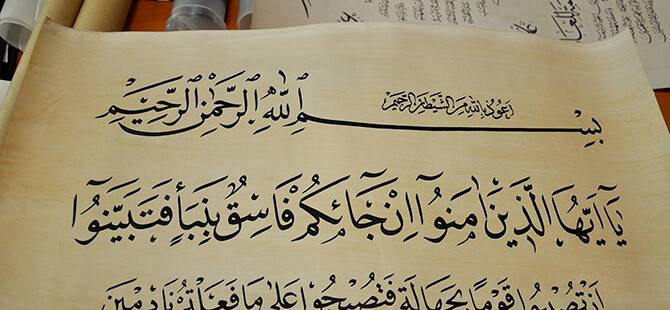 اعوذ بالله من الشيطان الرجيم
بِسْمِ اللّٰهِ الرَّحْمٰنِ الرَّحِيْمِ
يَٓا اَيُّهَا الَّذِيْنَ اٰمَنُوٓا اِنْ جَٓائَكُمْ فَاسِقٌ بِنَبَأٍ فَتَبَيَّنُٓوا
اَنْ تُصِيْبُوا قَوْمًا بِجَهَالَةٍ فَتُصْبِحُوا عَلٰى مَا فَعَلْتُمْ نَادِمِيْنَ